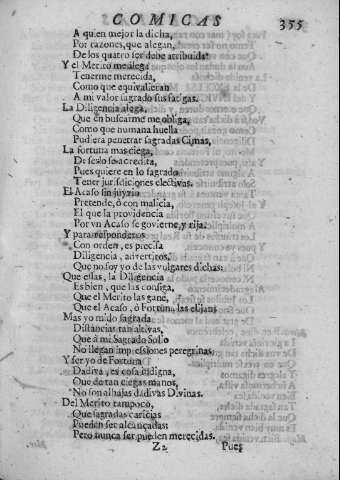 COMICAS 355
A quien mejor la dicha,
Por razones, que alegan,
De los quatro ser debe atribuida
Y el Merito me alega
Tenerme merecida,
Como que equivalieran
A mi valor sagrado sus fatigas.
La Diligencia alega,
Que en buscarme me obliga,
Como que humana huella
Pudiera penetrar sagradas Cimas,
La fortuna mas ciega,
De serlo se acredita,
Pues quiere en lo sagrado
Tener jurisdiciones electivas.
El Acaso sin juyzio
Pretende, ò con malicia,
El que la providencia
Por vn Acaso se govierne, y rija.
Y para responderos
Con orden, es precisa
Diligencia, advertiros,
Que no soy yo de las vulgares dichas:
Que essas, la Diligencia
Es bien, que las consiga,
Que el Merito las gane,
Que el Acaso, ò Fortuna las elijan;
Mas yo mido sagrada
Distancias tan altivas,
Que à mi Sagrado Solio
No llegan impressiones peregrinas.
Y ser yo de Fortuna
Dadiva, es cosa indigna,
Que de tan ciegas manos,
No son alhajas dadivas Divinas.
Del Merito tampoco,
Que sagradas caricias
Pueden ser alcançadas;
Pero nunca ser pueden merecidas.
Z2 Pues